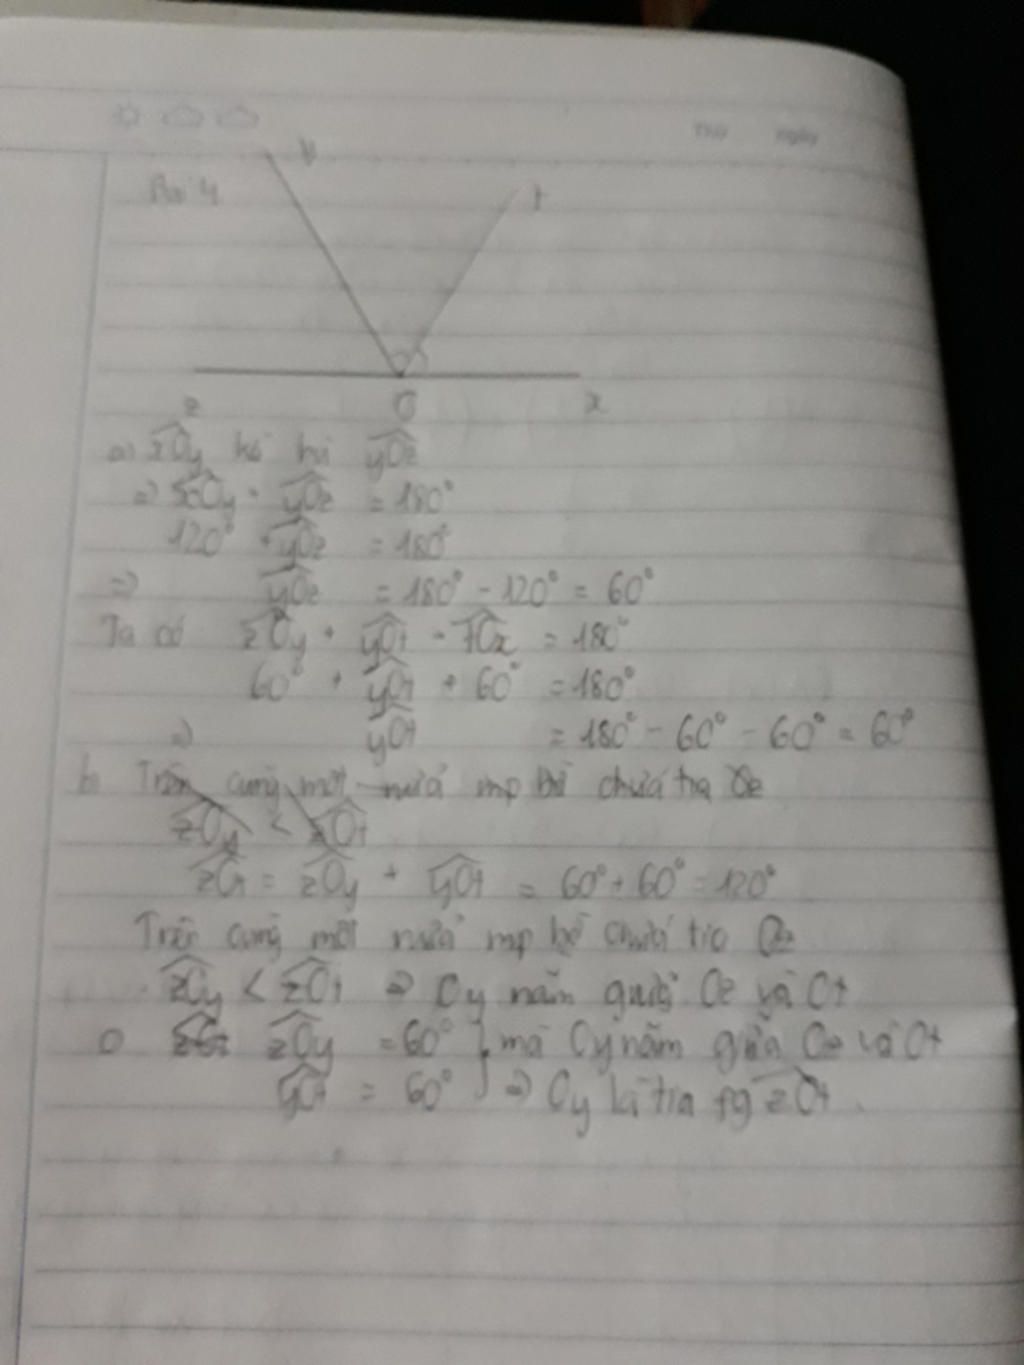 Thứ ngày
Bài 4
y
t
z O x
a) xOy kề bù yOz
=> xOy + yOz = 180°
120° + yOz = 180°
=> yOz = 180° - 120° = 60°
Ta có zOy + yOt + tOx = 180°
60° + yOt + 60° = 180°
=> yOt = 180° - 60° - 60° = 60°
b. Trên cùng một nửa mp bờ chứa tia Oz
zOy < zOt
zOt = zOy + yOt = 60° + 60° = 120°
Trên cùng một nửa mp bờ chứa tia Oz
zOy < zOt => Oy nằm giữa Oz và Ot
zOy = 60° } mà Oy nằm giữa Oz và Ot
yOt = 60° => Oy là tia fg zOt